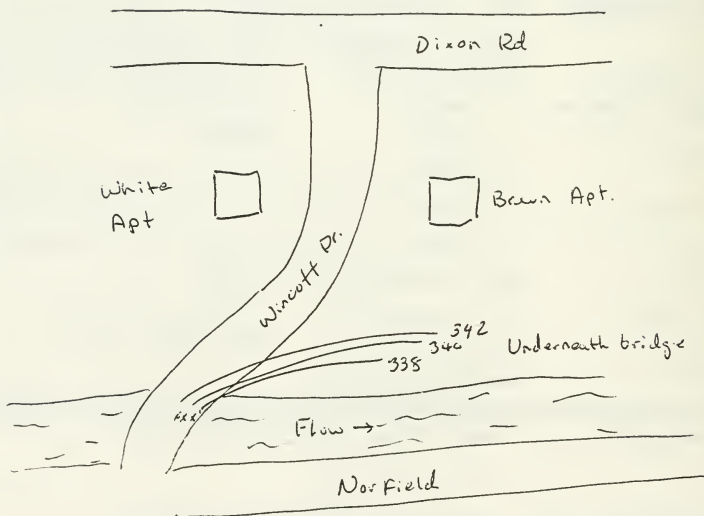 Dixon Rd
White
Apt
Brown Apt.
Wincott Dr.
342
340
338
Underneath bridge
Flow →
Norfield